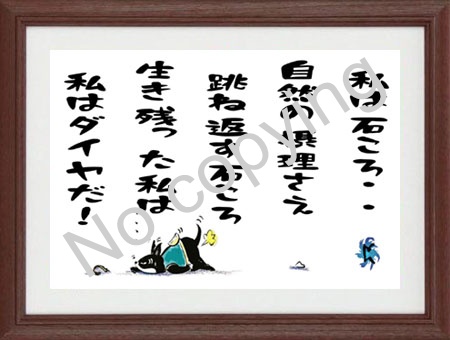 私は石ころ・・
自然の摂理さえ
跳ね返す石ころ
生き残った私は…
私はダイヤだ!
No copying